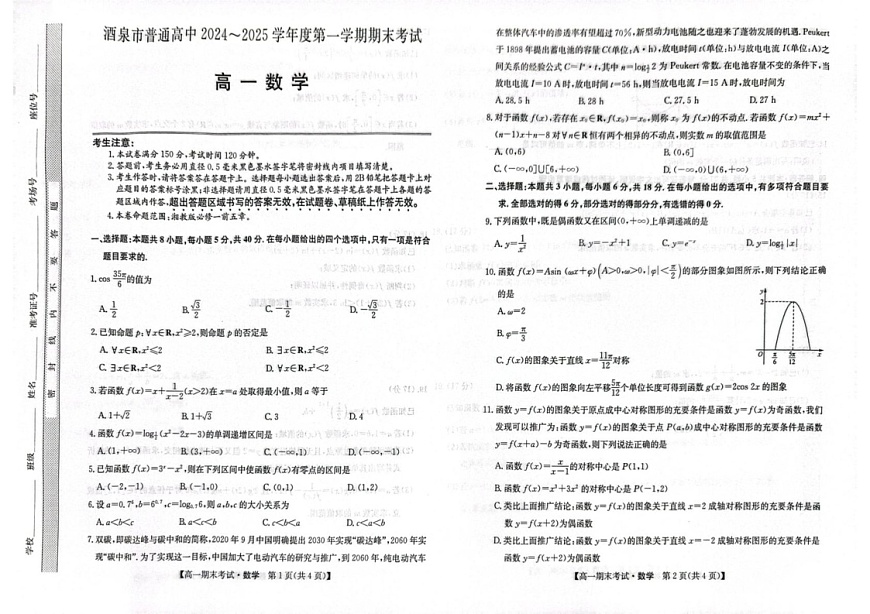 酒泉市普通高中2024～2025学年度第一学期期末考试
高一数学
考生注意：
1.本试卷满分150分,考试时间120分钟。
2.答题前,考生务必用直径0.5毫米黑色墨水签字笔将密封线内项目填写清楚。
3.考生作答时,请将答案答在答题卡上。选择题每小题选出答案后,用2B铅笔把答题卡对
应题目的答案标号涂黑;非选择题请用直径0.5毫米黑色墨水签字笔在答题卡上各题的答
题区域内作答,超出答题区域书写的答案无效,在试题卷、草稿纸上作答无效。
4.本卷命题范围:湘教版必修一前五章。
一、选择题:本题共8小题,每小题5分,共40分.在每小题给出的四个选项中,只有一项是符合
题目要求的.
1.cos 35π/6 的值为
A. 1/2 B. √3/2 C. -1/2 D. -√3/2
2.已知命题p:∀x∈R,x²≥2,则命题p的否定是
A. ∀x∈R,x²≤2 B. ∃x∈R,x²≤2
C. ∃x∈R,x²<2 D. ∀x∈R,x²<2
3.若函数f(x)=x+1/(x-2)(x>2)在x=a处取得最小值,则a等于
A.1+√2 B.1+√3 C.3 D.4
4.函数f(x)=log½(x²-2x-3)的单调递增区间是
A.(1,+∞) B.(3,+∞) C.(-∞,1) D.(-∞,-1)
5.已知函数f(x)=3ˣ-x²,则在下列区间中使函数f(x)有零点的区间是
A.(-2,-1) B.(-1,0) C.(0,1) D.(1,2)
6.设a=0.7⁶,b=6⁰·⁷,c=log₀.₇6,则a,b,c的大小关系为
A.a<b<c B.a<c<b C.c<b<a D.c<a<b
7.双碳,即碳达峰与碳中和的简称,2020年9月中国明确提出2030年实现“碳达峰”,2060年实
现“碳中和”.为了实现这一目标,中国加大了电动汽车的研究与推广,到2060年,纯电动汽车
【高一期末考试·数学 第1页(共4页)】
在整体汽车中的渗透率有望超过70%,新型动力电池随之也迎来了蓬勃发展的机遇.Peukert
于1898年提出蓄电池的容量C(单位:A·h),放电时间t(单位:h)与放电电流I(单位:A)之
间关系的经验公式C=Iⁿ·t,其中n=log_{3/2}2为Peukert常数.在电池容量不变的条件下,当
放电电流I=10 A时,放电时间t=56 h,则当放电电流I=15 A时,放电时间为
A.28.5 h B.28 h C.27.5 h D.27 h
8.对于函数f(x),若存在x₀∈R,f(x₀)=x₀,则称x₀为f(x)的不动点.若函数f(x)=mx²+
(n-1)x+n-8对∀n∈R恒有两个相异的不动点,则实数m的取值范围是
A.(0,6) B.(0,6]
C.(-∞,0]∪[6,+∞) D.(-∞,0)∪(6,+∞)
二、选择题:本题共3小题,每小题6分,共18分.在每小题给出的选项中,有多项符合题目要
求.全部选对的得6分,部分选对的得部分分,有选错的得0分.
9.下列函数中,既是偶函数又在区间(0,+∞)上单调递减的是
A.y=1/x² B.y=-x²+1 C.y=e⁻ˣ D.y=log½|x|
10.函数f(x)=Asin(ωx+φ)(A>0,ω>0,|φ|<π/2)的部分图象如图所示,则下列结论正确
的是
A.ω=2
B.φ=π/3
C.f(x)的图象关于直线x=11π/12对称
D.将函数f(x)的图象向左平移5π/12个单位长度可得到函数g(x)=2cos 2x的图象
y
2
O π/6 5π/12 x
11.函数y=f(x)的图象关于原点成中心对称图形的充要条件是函数y=f(x)为奇函数,我们
发现可以推广为:函数y=f(x)的图象关于点P(a,b)成中心对称图形的充要条件是函数
y=f(x+a)-b为奇函数,则下列说法正确的是
A.函数f(x)=x/(x-1)的对称中心是P(1,1)
B.函数f(x)=x³+3x²的对称中心是P(-1,2)
C.类比上面推广结论:函数y=f(x)的图象关于直线x=2成轴对称图形的充要条件是函
数y=f(x+2)为偶函数
D.类比上面推广结论:函数y=f(x)的图象关于直线x=-2成轴对称图形的充要条件是
函数y=f(x+2)为偶函数
【高一期末考试·数学 第2页(共4页)】
学校
班级
姓名
准考证号
考场号
座位号
密封线内不要答题